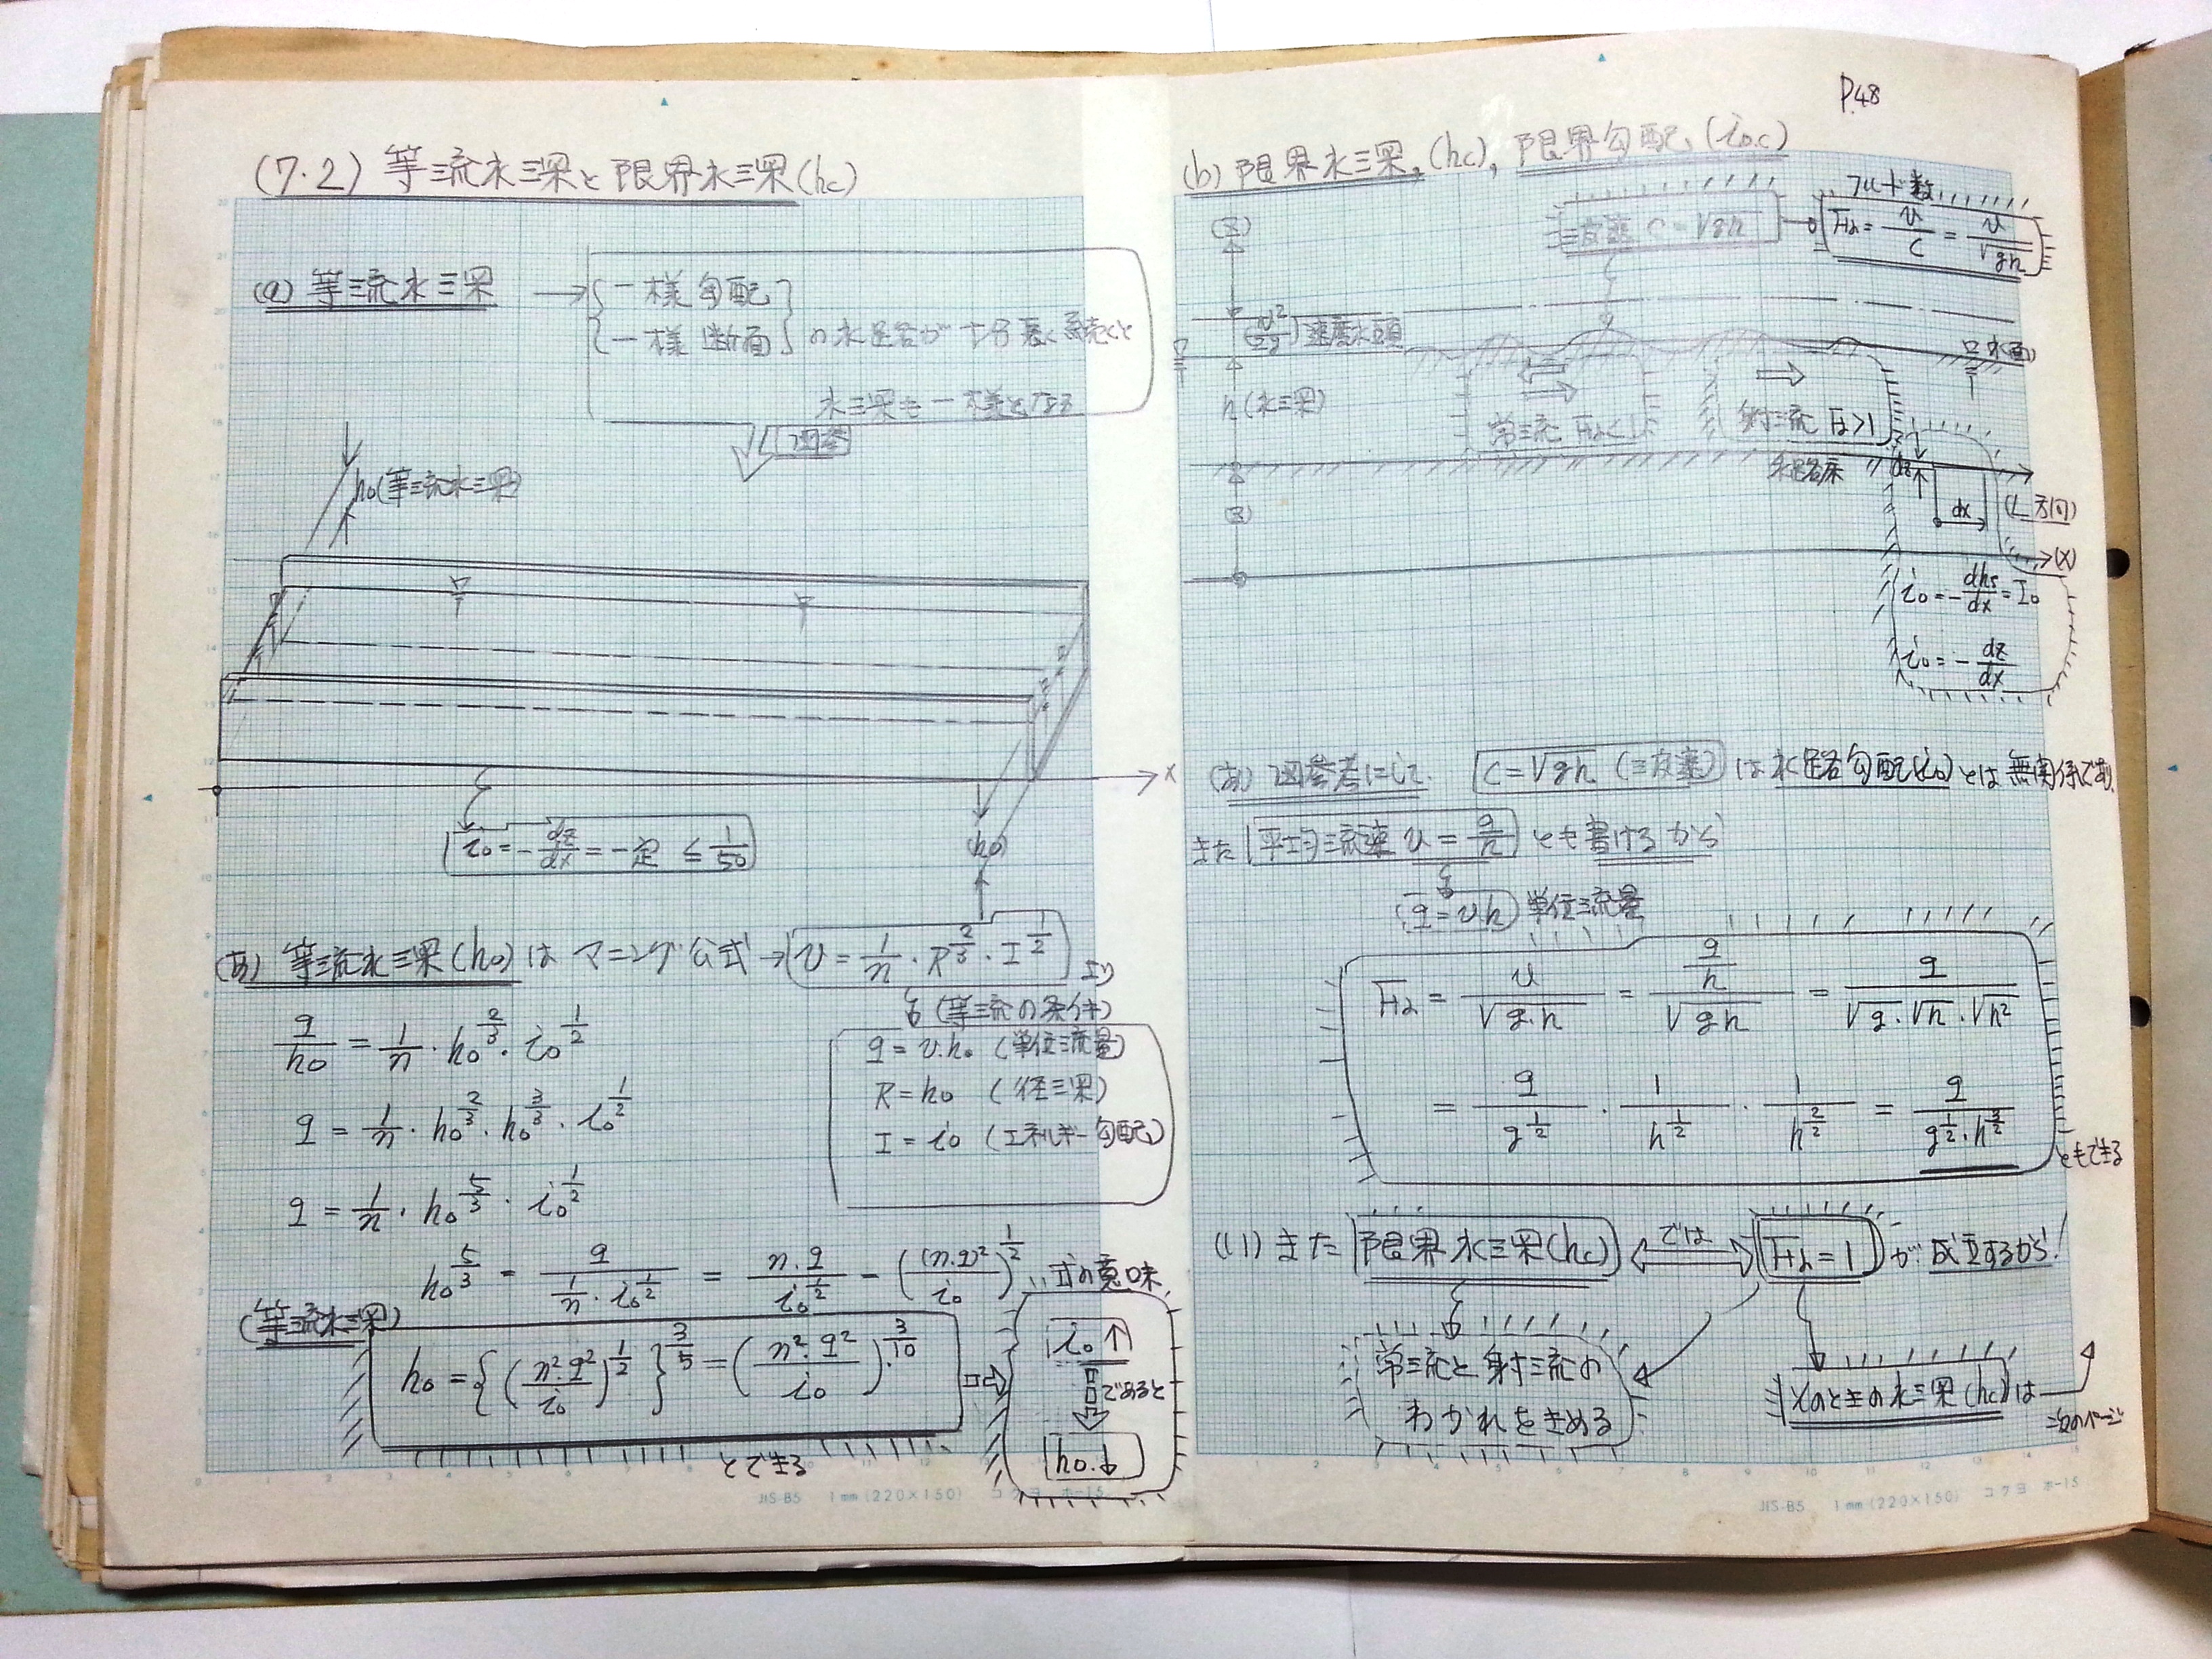 P.48
(7.2) 等流水深と限界水深(hc)
(a) 等流水深 → { 一様勾配
一様断面 } の水路が十分長く続くと
水深も一様となる
図参
h₀(等流水深)
x
i₀ = -dz/dx = 一定 ≦ 1/50
(h₀)
(あ) 等流水深(h₀)は マニング公式 → v = 1/n · R^(2/3) · I^(1/2) より
(等流の条件)
q/h₀ = 1/n · h₀^(2/3) · i₀^(1/2)
q = v.h₀ (単位流量)
R = h₀ (径深)
I = i₀ (エネルギー勾配)
q = 1/n · h₀^(2/3) · h₀^(3/3) · i₀^(1/2)
q = 1/n · h₀^(5/3) · i₀^(1/2)
h₀^(5/3) = q/(1/n · i₀^(1/2)) = n.q/i₀^(1/2) = ((n.q)²/i₀)^(1/2)
式の意味
(等流水深)
h₀ = {(n².q²/i₀)^(1/2)}^(3/5) = (n².q²/i₀)^(3/10)
とできる
i₀↑
であると
h₀.↓
JIS-B5 1mm(220×150) コクヨ ホ-15
(b) 限界水深,(hc), 限界勾配,(i₀.c)
波速 C = √gh
フルード数
Fr = v/C = v/√gh
(z)
(v²/2g) 速度水頭
水面
h (水深)
常流 Fr<1
射流 Fr>1
水路床
dz
dx
(L方向)
(z)
(x)
i₀ = -dhs/dx = I₀
i₀ = -dz/dx
(あ) 図参考にして. C = √gh (波速) は 水路勾配(i₀)とは無関係であり,
また 平均流速 v = q/h とも書けるから
(q = v.h) 単位流量
Fr = v/√g.h = (q/h)/√gh = q/(√g.√h.√h²)
= q/g^(1/2) · 1/h^(1/2) · 1/h^(2/2) = q/(g^(1/2).h^(3/2))
ともできる
(い) また 限界水深(hc) では Fr = 1 が成立するから!
常流と射流の
わかれをきめる
そのときの水深(hc)は
次のページ
JIS-B5 1mm(220×150) コクヨ ホ-15